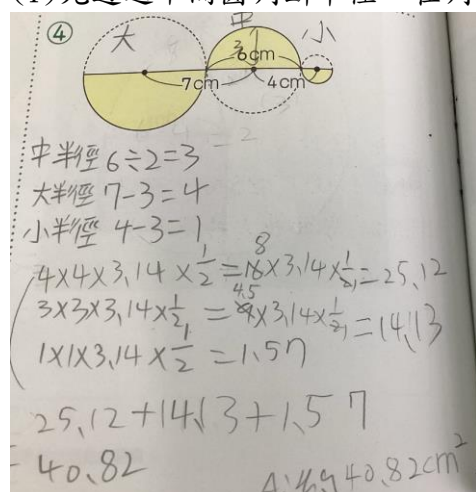 ④ 大 中 小
3
6cm
7cm 4cm
中半徑 6÷2=3
大半徑 7-3=4
小半徑 4-3=1
4×4×3.14×1/2=16×3.14×1/2=25.12
8 1
3×3×3.14×1/2=9×3.14×1/2=14.13
4.5 1
1×1×3.14×1/2=1.57
25.12+14.13+1.57
=40.82
A:約40.82cm²